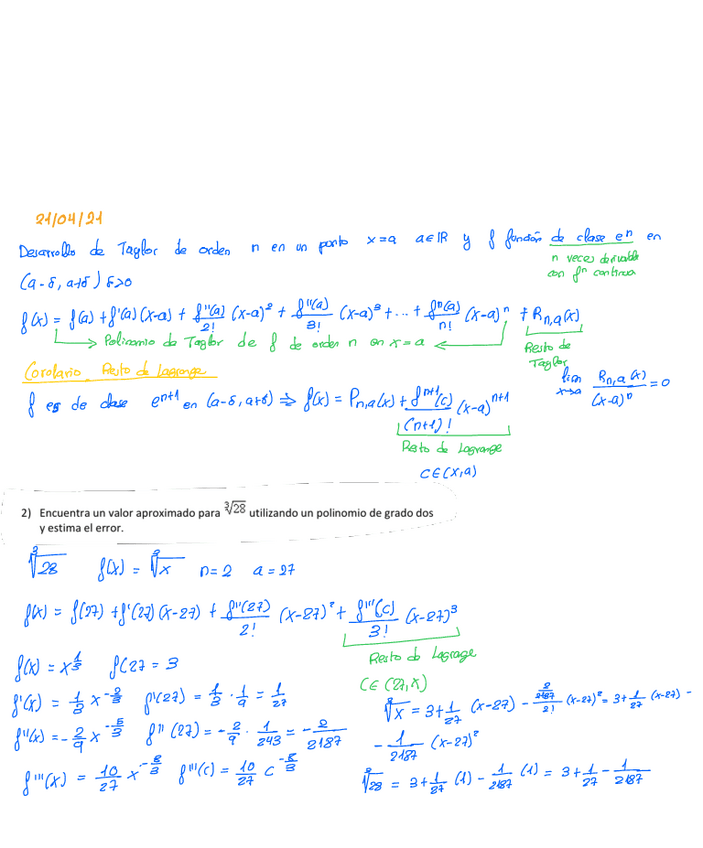 21/04/21
Desarrollo de Taylor de orden n en un punto x=a a∈ℝ y f función de clase eⁿ en
n veces derivable
con fⁿ continua
(a-δ, a+δ) δ>0
f(x) = f(a) + f'(a)(x-a) + f''(a)/2! (x-a)² + f'''(a)/3! (x-a)³ + ... + fⁿ(a)/n! (x-a)ⁿ + Rn,a(x)
Polinomio de Taylor de f de orden n en x=a
Resto de
Taylor
lim x→a Rn,a(x)/(x-a)ⁿ = 0
Corolario Resto de Lagrange
f es de clase eⁿ⁺¹ en (a-δ, a+δ) ⇒ f(x) = Pn,a(x) + fⁿ⁺¹(c)/(n+1)! (x-a)ⁿ⁺¹
Resto de Lagrange
c∈(x,a)
2) Encuentra un valor aproximado para ∛28 utilizando un polinomio de grado dos
y estima el error.
∛28 f(x) = ∛x n=2 a=27
f(x) = f(27) + f'(27)(x-27) + f''(27)/2! (x-27)² + f'''(c)/3! (x-27)³
Resto de Lagrange
c∈(27,x)
f(x) = x^(1/3) f(27 = 3
f'(x) = 1/3 x^(-2/3) f'(27) = 1/3 · 1/9 = 1/27
f''(x) = -2/9 x^(-5/3) f''(27) = -2/9 · 1/243 = -2/2187
f'''(x) = 10/27 x^(-8/3) f'''(c) = 10/27 c^(-8/3)
∛x = 3 + 1/27 (x-27) - (2/2187)/2! (x-27)² = 3 + 1/27 (x-27) -
- 1/2187 (x-27)²
∛28 = 3 + 1/27 (1) - 1/2187 (1) = 3 + 1/27 - 1/2187